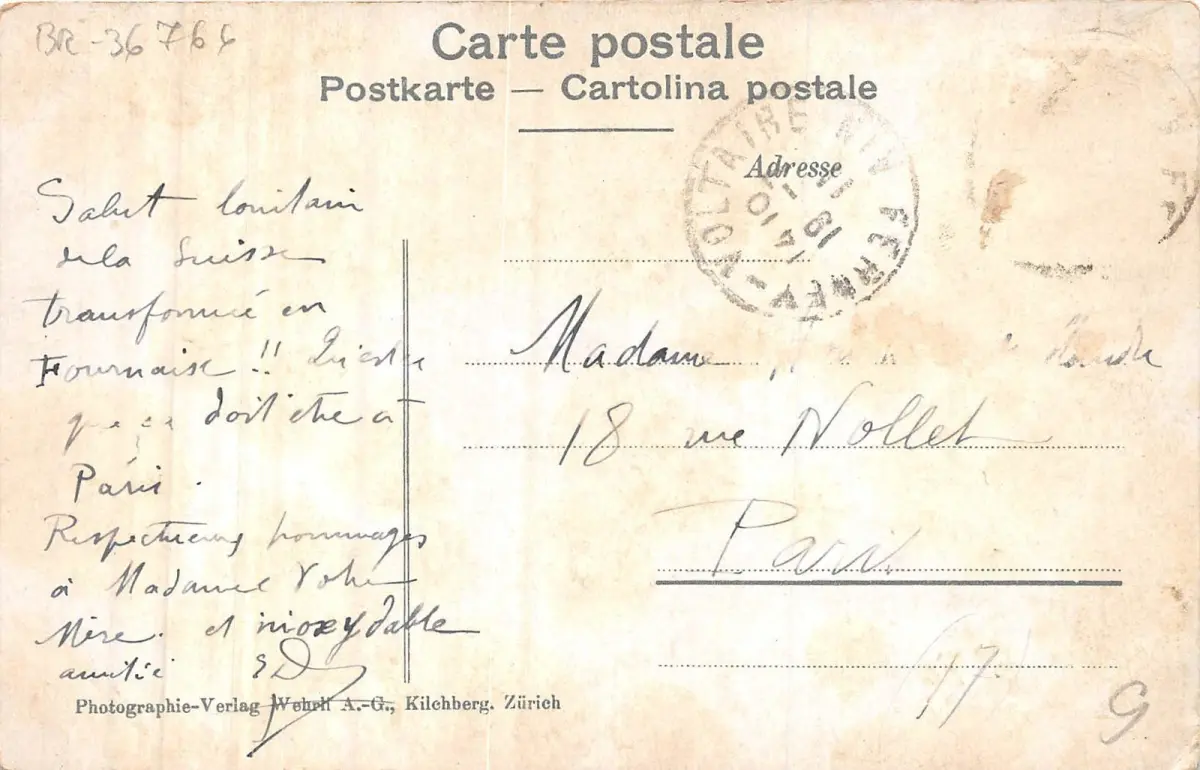 BR-36766
Carte postale
Postkarte — Cartolina postale
Adresse
FERNEY-VOLTAIRE AIN
14 10
19
Salut lointain
de la Suisse
transformée en
Fournaise !! Qu'est ce
que ça doit être à
Paris.
Respectueux hommages
à Madame Votre
Mère. et inoxydable
amitié ED
Madame
18 rue Nollet
Paris
(17)
G
Photographie-Verlag Wehrli A.-G., Kilchberg. Zürich